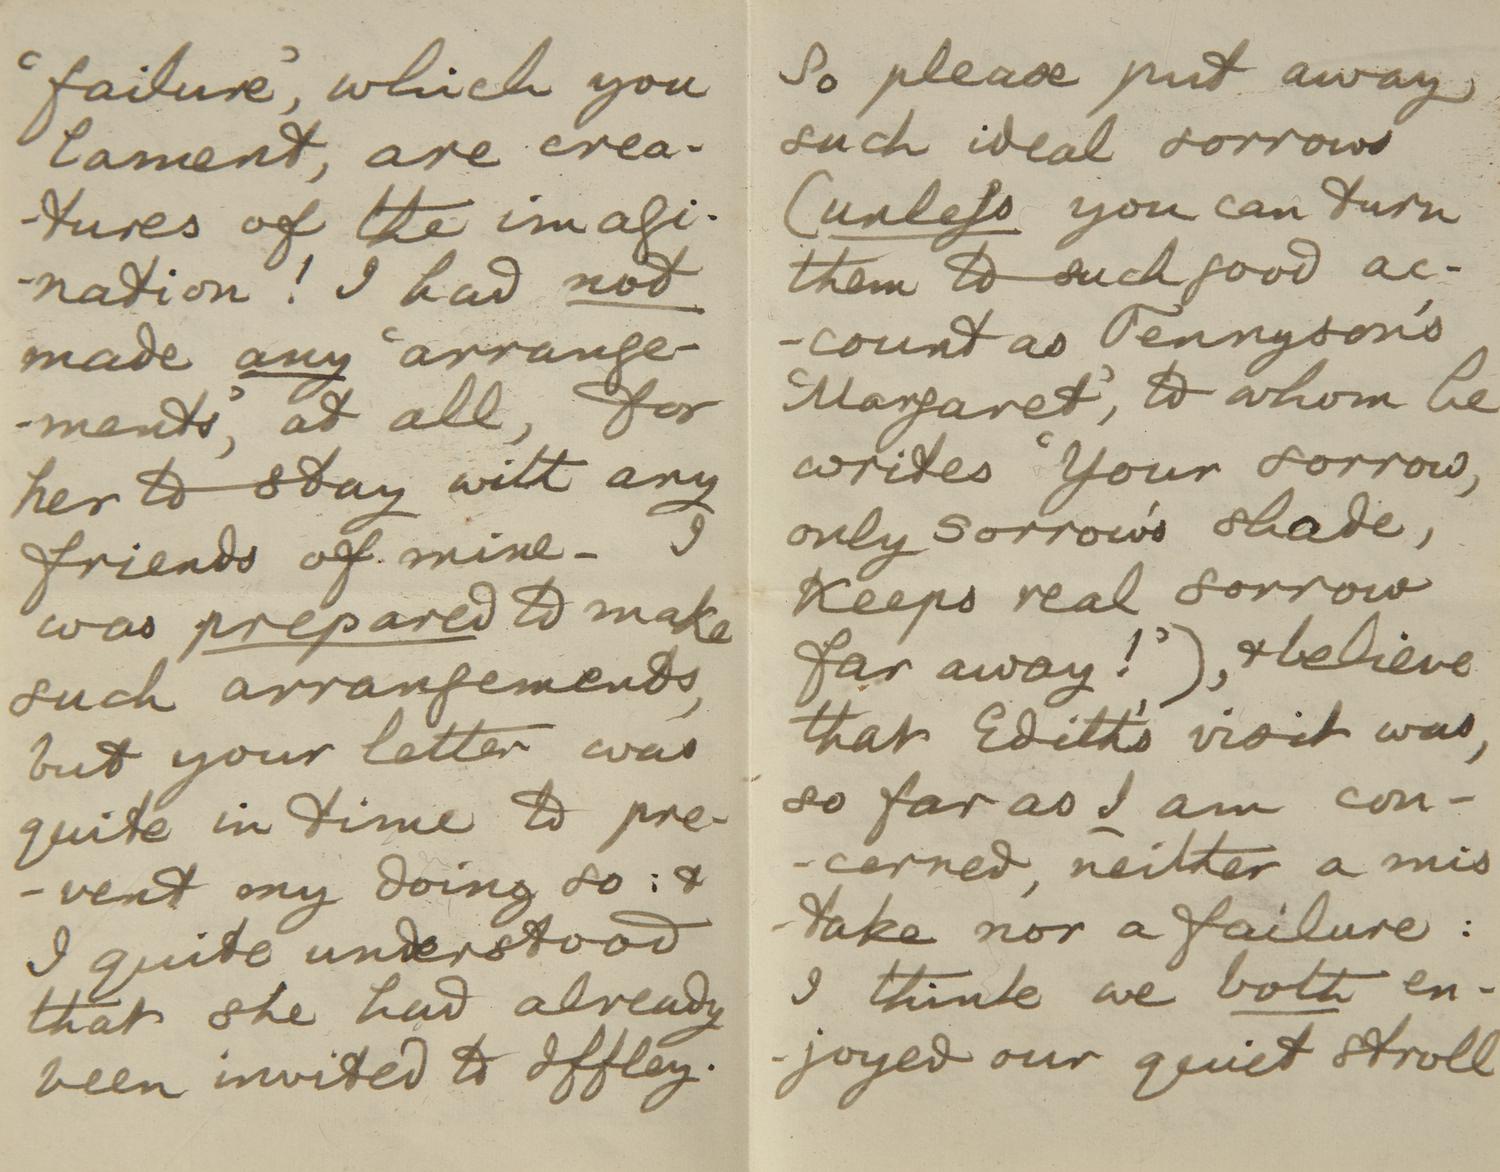 'failure', which you
lament, are crea-
-tures of the imagi-
-nation! I had not
made any 'arrange-
-ments', at all, for
her to stay with any
friends of mine - I
was prepared to make
such arrangements,
but your letter was
quite in time to pre-
-vent my doing so: &
I quite understood
that she had already
been invited to Iffley.
So please put away
such ideal sorrows
(unless you can turn
them to such good ac-
-count as Tennyson's
'Margaret', to whom he
writes 'Your sorrow,
only sorrow's shade,
Keeps real sorrow
far away!'), & believe
that Edith's visit was,
so far as I am con-
-cerned, neither a mis
-take nor a failure:
I think we both en-
-joyed our quiet stroll